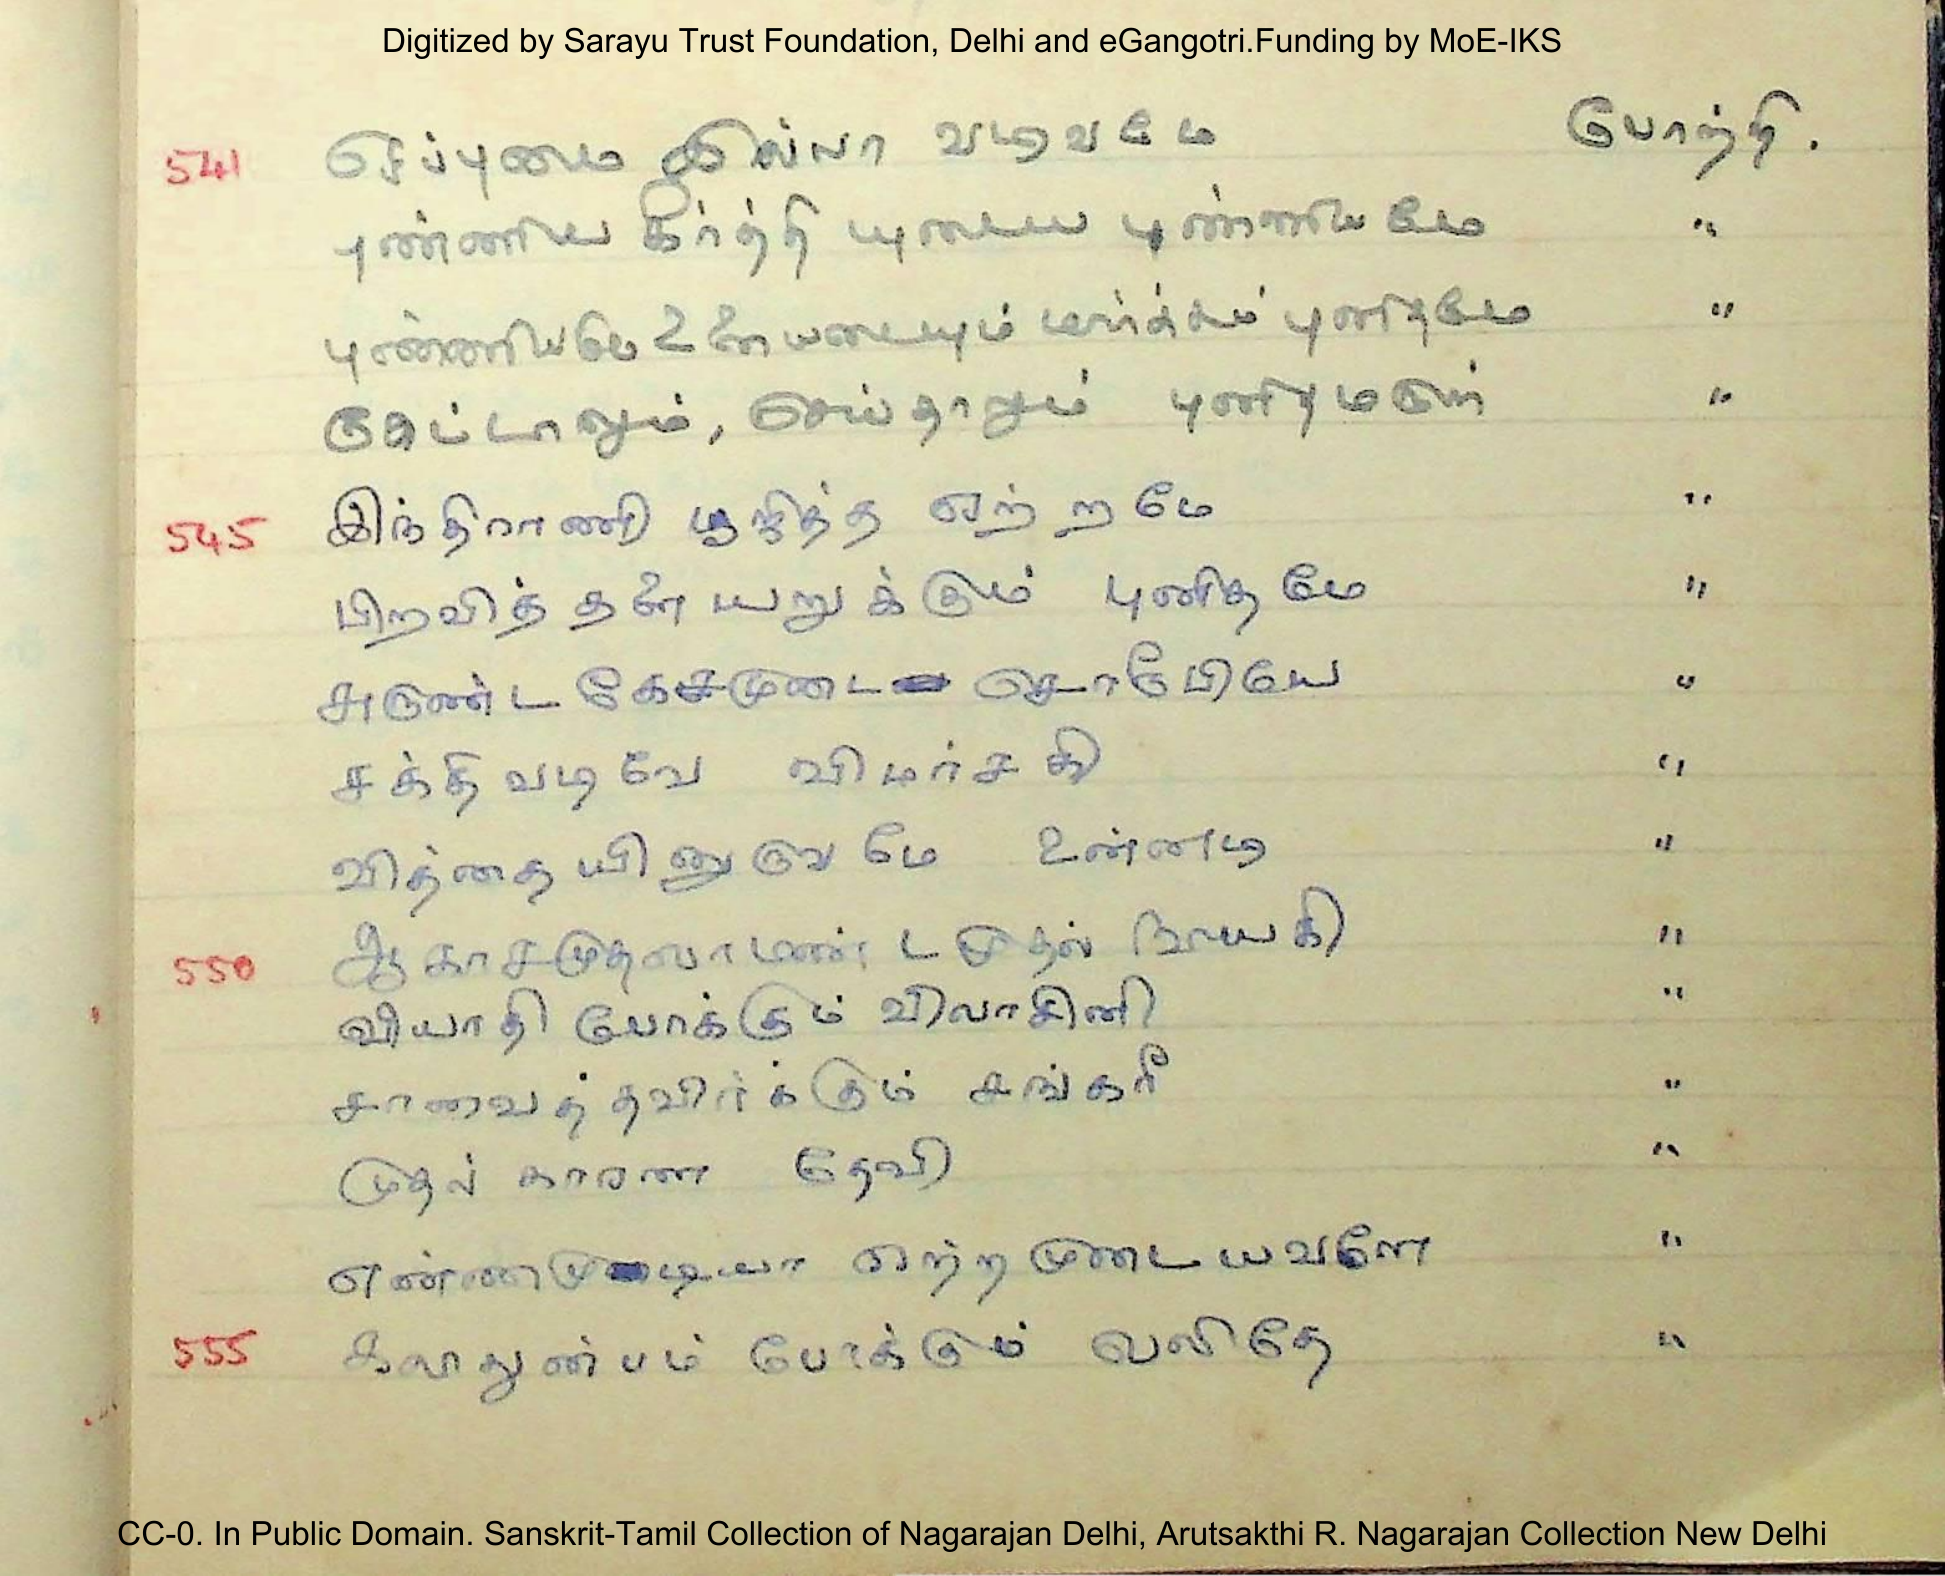 Digitized by Sarayu Trust Foundation, Delhi and eGangotri.Funding by MoE-IKS
541 ஒப்புமை இல்லா வடிவமே போற்றி.
புண்ணிய கீர்த்தி யுடைய புண்ணியமே "
புண்ணியமே உனையடையும் மார்க்கம் புனிதமே "
கேட்டாலும், செய்தாலும் புனிதமருள் "
545 இந்திராணி பூஜித்த ஏற்றமே "
பிறவித் தளை யறுக்கும் புனிதமே "
சுருண்ட கேசமுடை சொரூபியே "
சக்தி வடிவே விமர்சகி "
வித்தை யினுருவமே உன்னடி "
550 ஆகாசமுதலாமண்டமுதல் நாயகி "
வியாதி போக்கும் விலாசினி "
சாவைத் தவிர்க்கும் சங்கரீ "
முதல் காரண தேவி "
எண்ணமுடியா ஏற்றமுடையவளே "
555 கலிதுன்பம் போக்கும் "
CC-0. In Public Domain. Sanskrit-Tamil Collection of Nagarajan Delhi, Arutsakthi R. Nagarajan Collection New Delhi